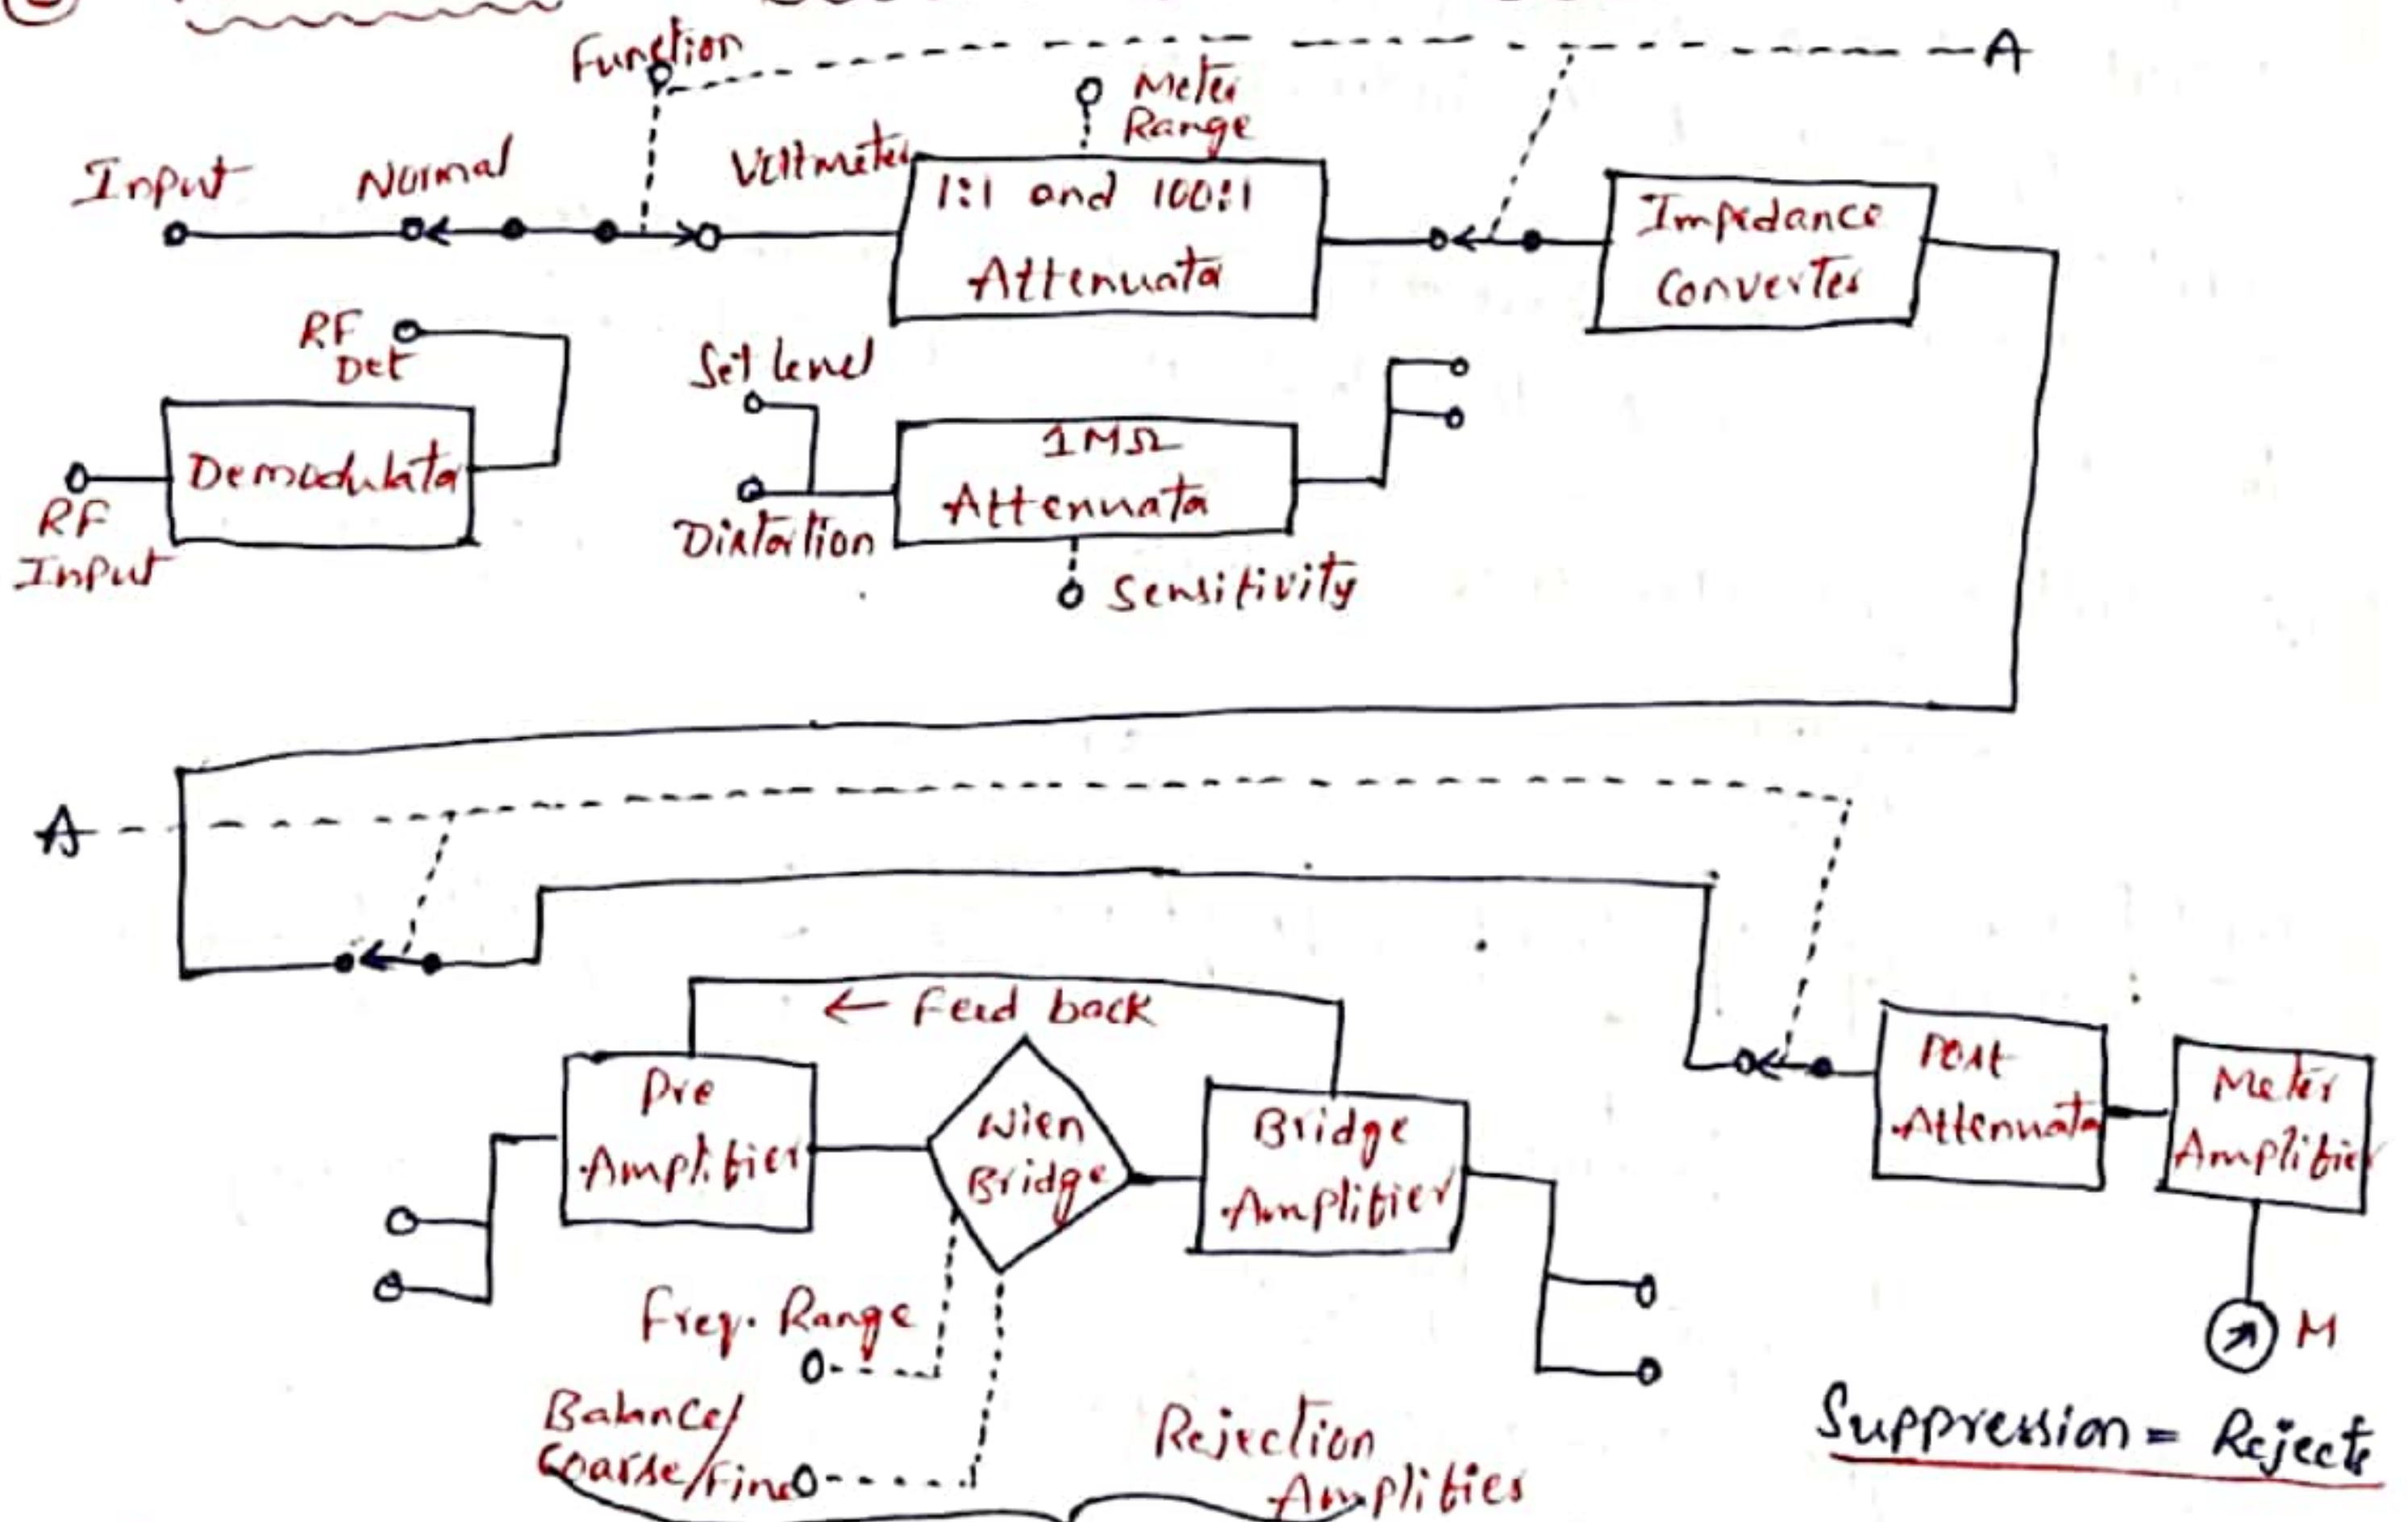 Function
A
Meter
Range
Input
Normal
Voltmeter
1:1 and 100:1
Attenuator
Impedance
Converter
RF
Det
Set level
Demodulator
1MΩ
Attenuator
RF
Input
Distortion
Sensitivity
A
← Feed back
Pre
Amplifier
Wien
Bridge
Bridge
Amplifier
Post
Attenuator
Meter
Amplifier
Freq. Range
M
Balance/
Coarse/Fine
Rejection
Amplifier
Suppression = Rejects